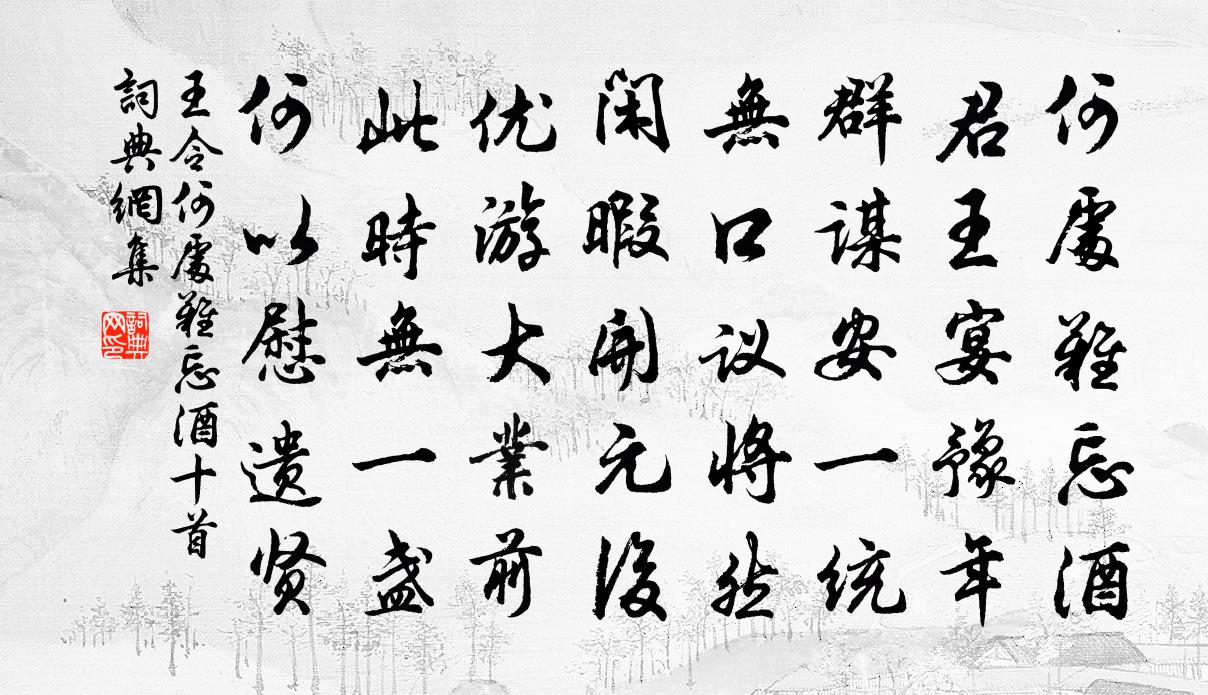 何處難忘酒
君王宴豫年
群谋安一統
無口议將然
闲暇開元後
优游大業前
此時無一盏
何以慰遗贤
王令何處難忘酒十首
詞典網集
詞典
网印